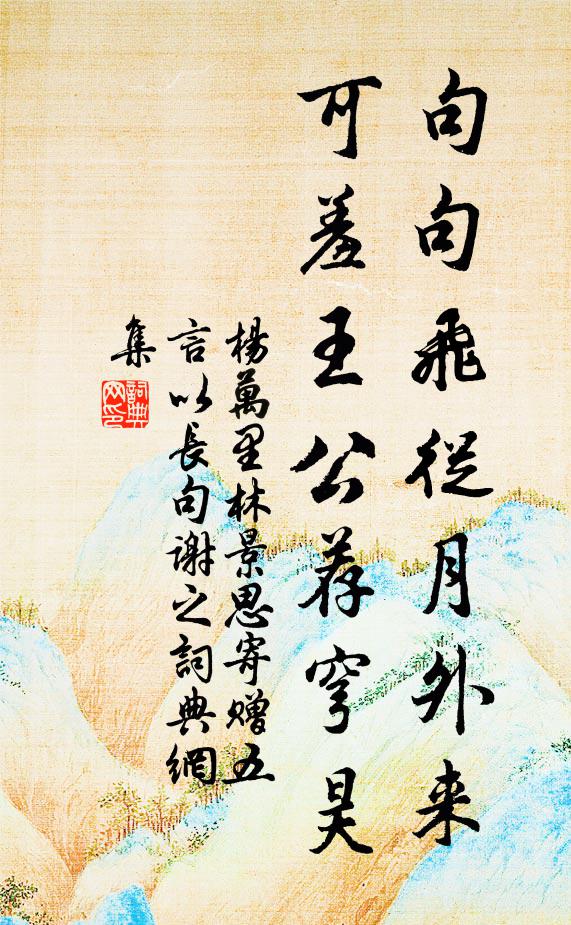 句句飛從月外来
可羞王公荐穹昊
楊萬里林景思寄贈五
言以長句謝之詞典網
集
詞典
网印